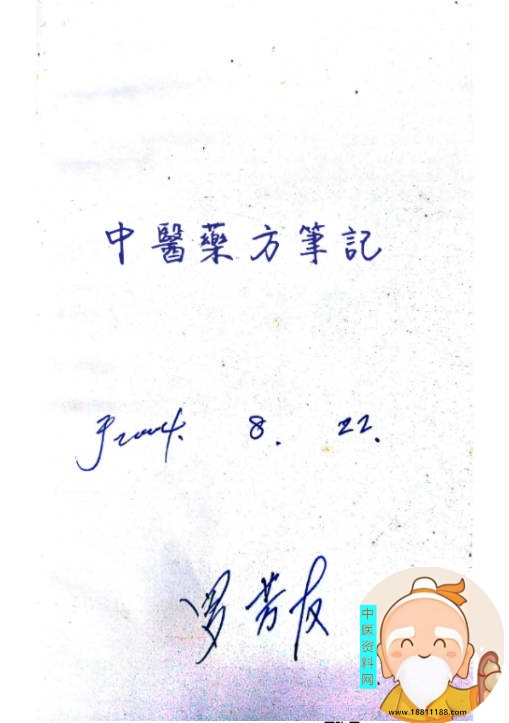 中醫藥方筆記
于2004. 8. 22.
罗芳友
中医资料网
www.18811188.com